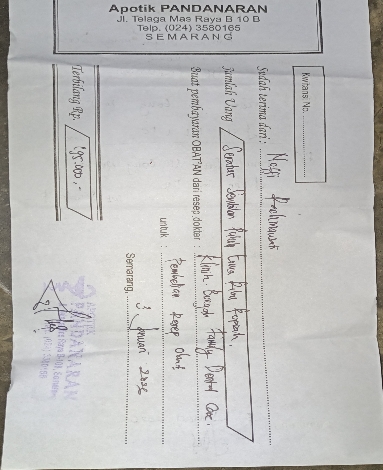 Apotik PANDANARAN
Jl. Telaga Mas Raya B 10 B
Telp. (024) 3580165
SEMARANG
Kwitansi No.
Sudah terima dari :
Jumlah Uang Seratus Sembilan Puluh Lima Ribu Rupiah.
Buat pembayaran OBAT²AN dari resep dokter : Klinik Family Dental Care.
untuk : Pembelian Resep Obat
Semarang, 3 Januari
Terbilang Rp. 195.000,-
APOTEK
PANDANARAN
SEMARANG